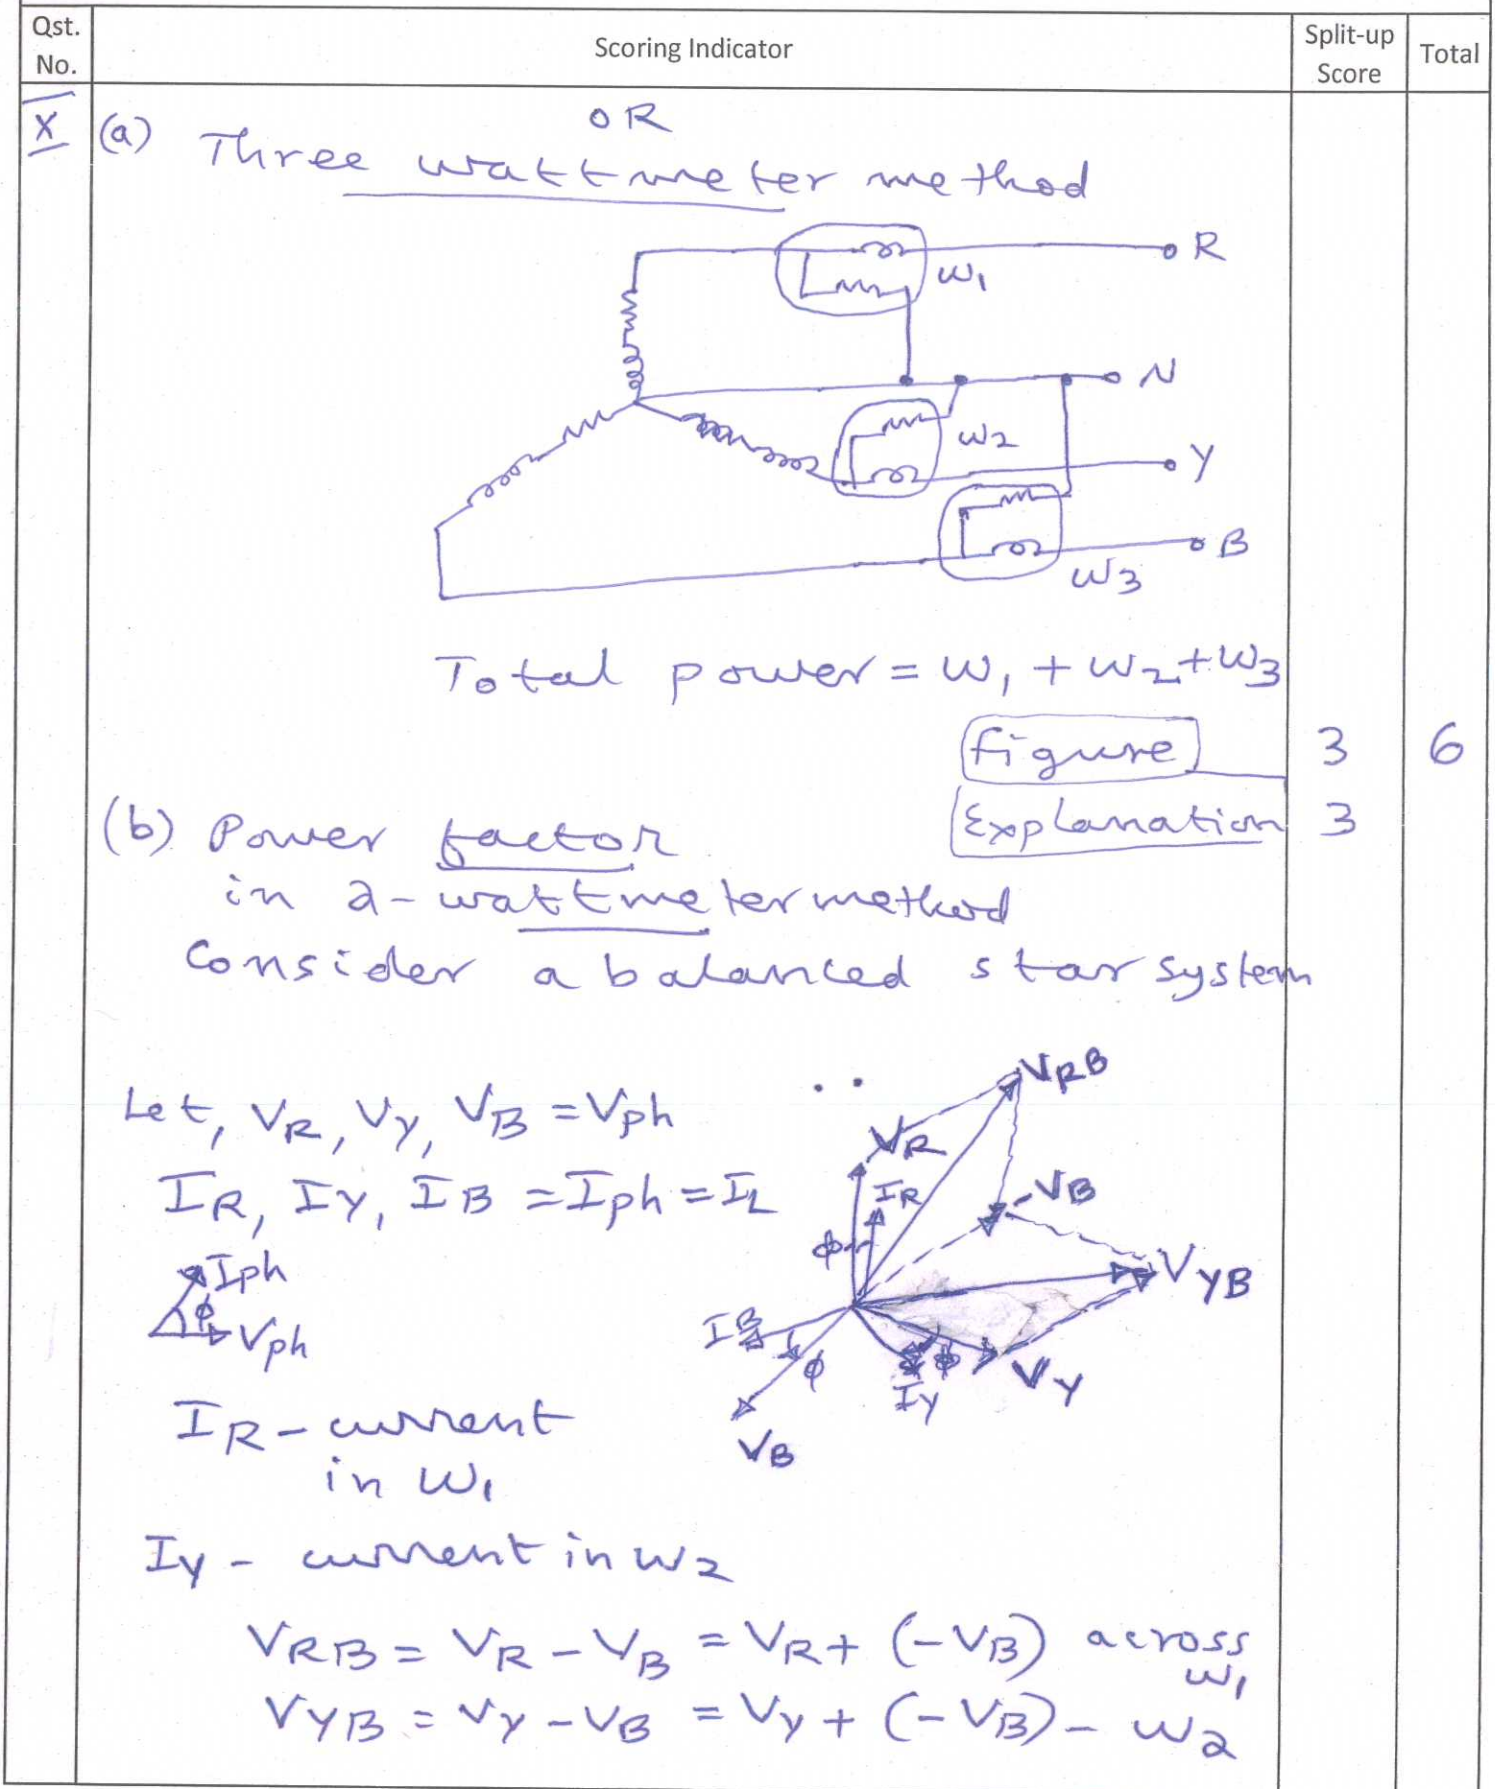 Qst. No.
Scoring Indicator
Split-up Score
Total
OR
X (a) Three wattmeter method
R
W1
N
W2
Y
B
W3
Total power = W1 + W2 + W3
figure 3 6
Explanation 3
(b) Power factor
in 2-wattmeter method
Consider a balanced star system
Let, VR, VY, VB = Vph
IR, IY, IB = Iph = IL
Iph
ϕ
Vph
VRB
VR
IR
-VB
ϕ
VYB
IB
ϕ
ϕ
IY
VY
VB
IR - current
in W1
IY - current in W2
VRB = VR - VB = VR + (-VB) across W1
VYB = VY - VB = VY + (-VB) - W2